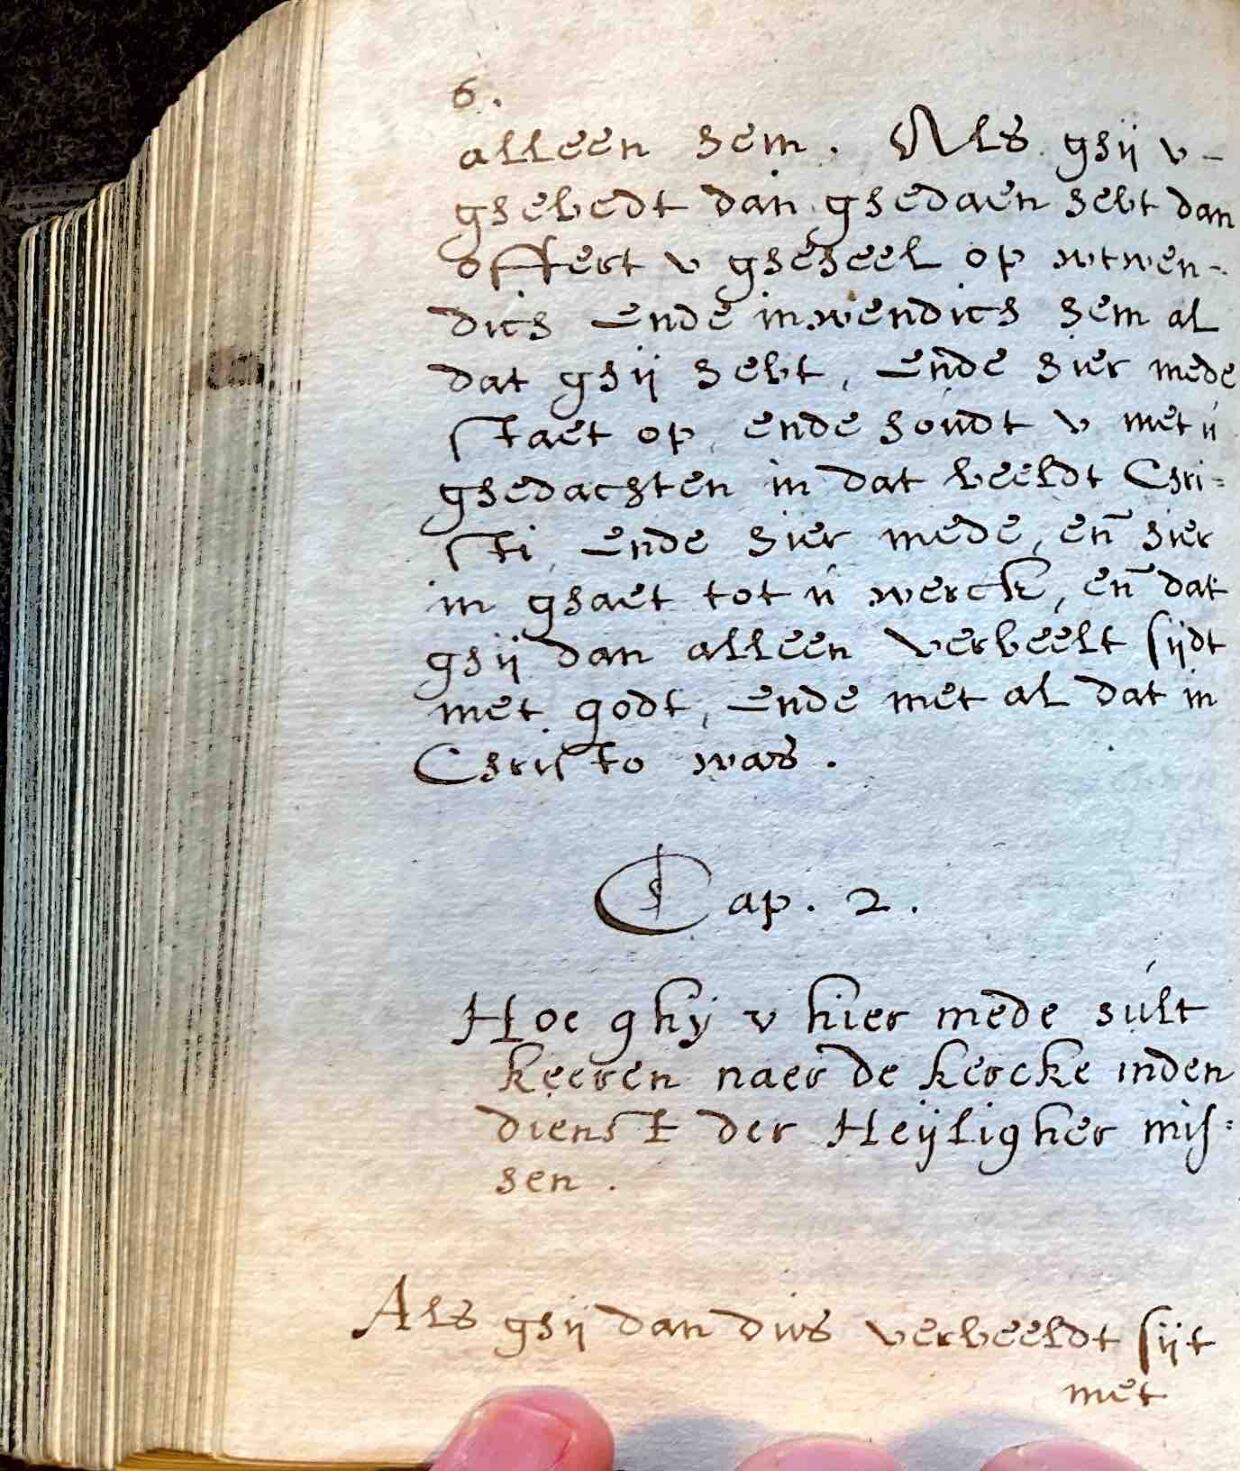 6.
alleen hem. Als ghij v-
ghebedt dan ghedaen hebt dan
offert v gheheel op wtwen-
dich ende inwendich hem al
dat ghij hebt, ende hier mede
staet op, ende houdt v met ú
ghedachten in dat beeldt Chri-
sti, ende hier mede, eñ hier
in ghaet tot ú werck, eñ dat
ghij dan alleen verbeelt sijdt
met godt, ende met al dat in
Christo was.
Cap. 2.
Hoe ghij v hier mede súlt
keeren naer de kercke inden
dienst der Heijligher mis-
sen.
Als ghij dan dus verbeeldt sijt
met